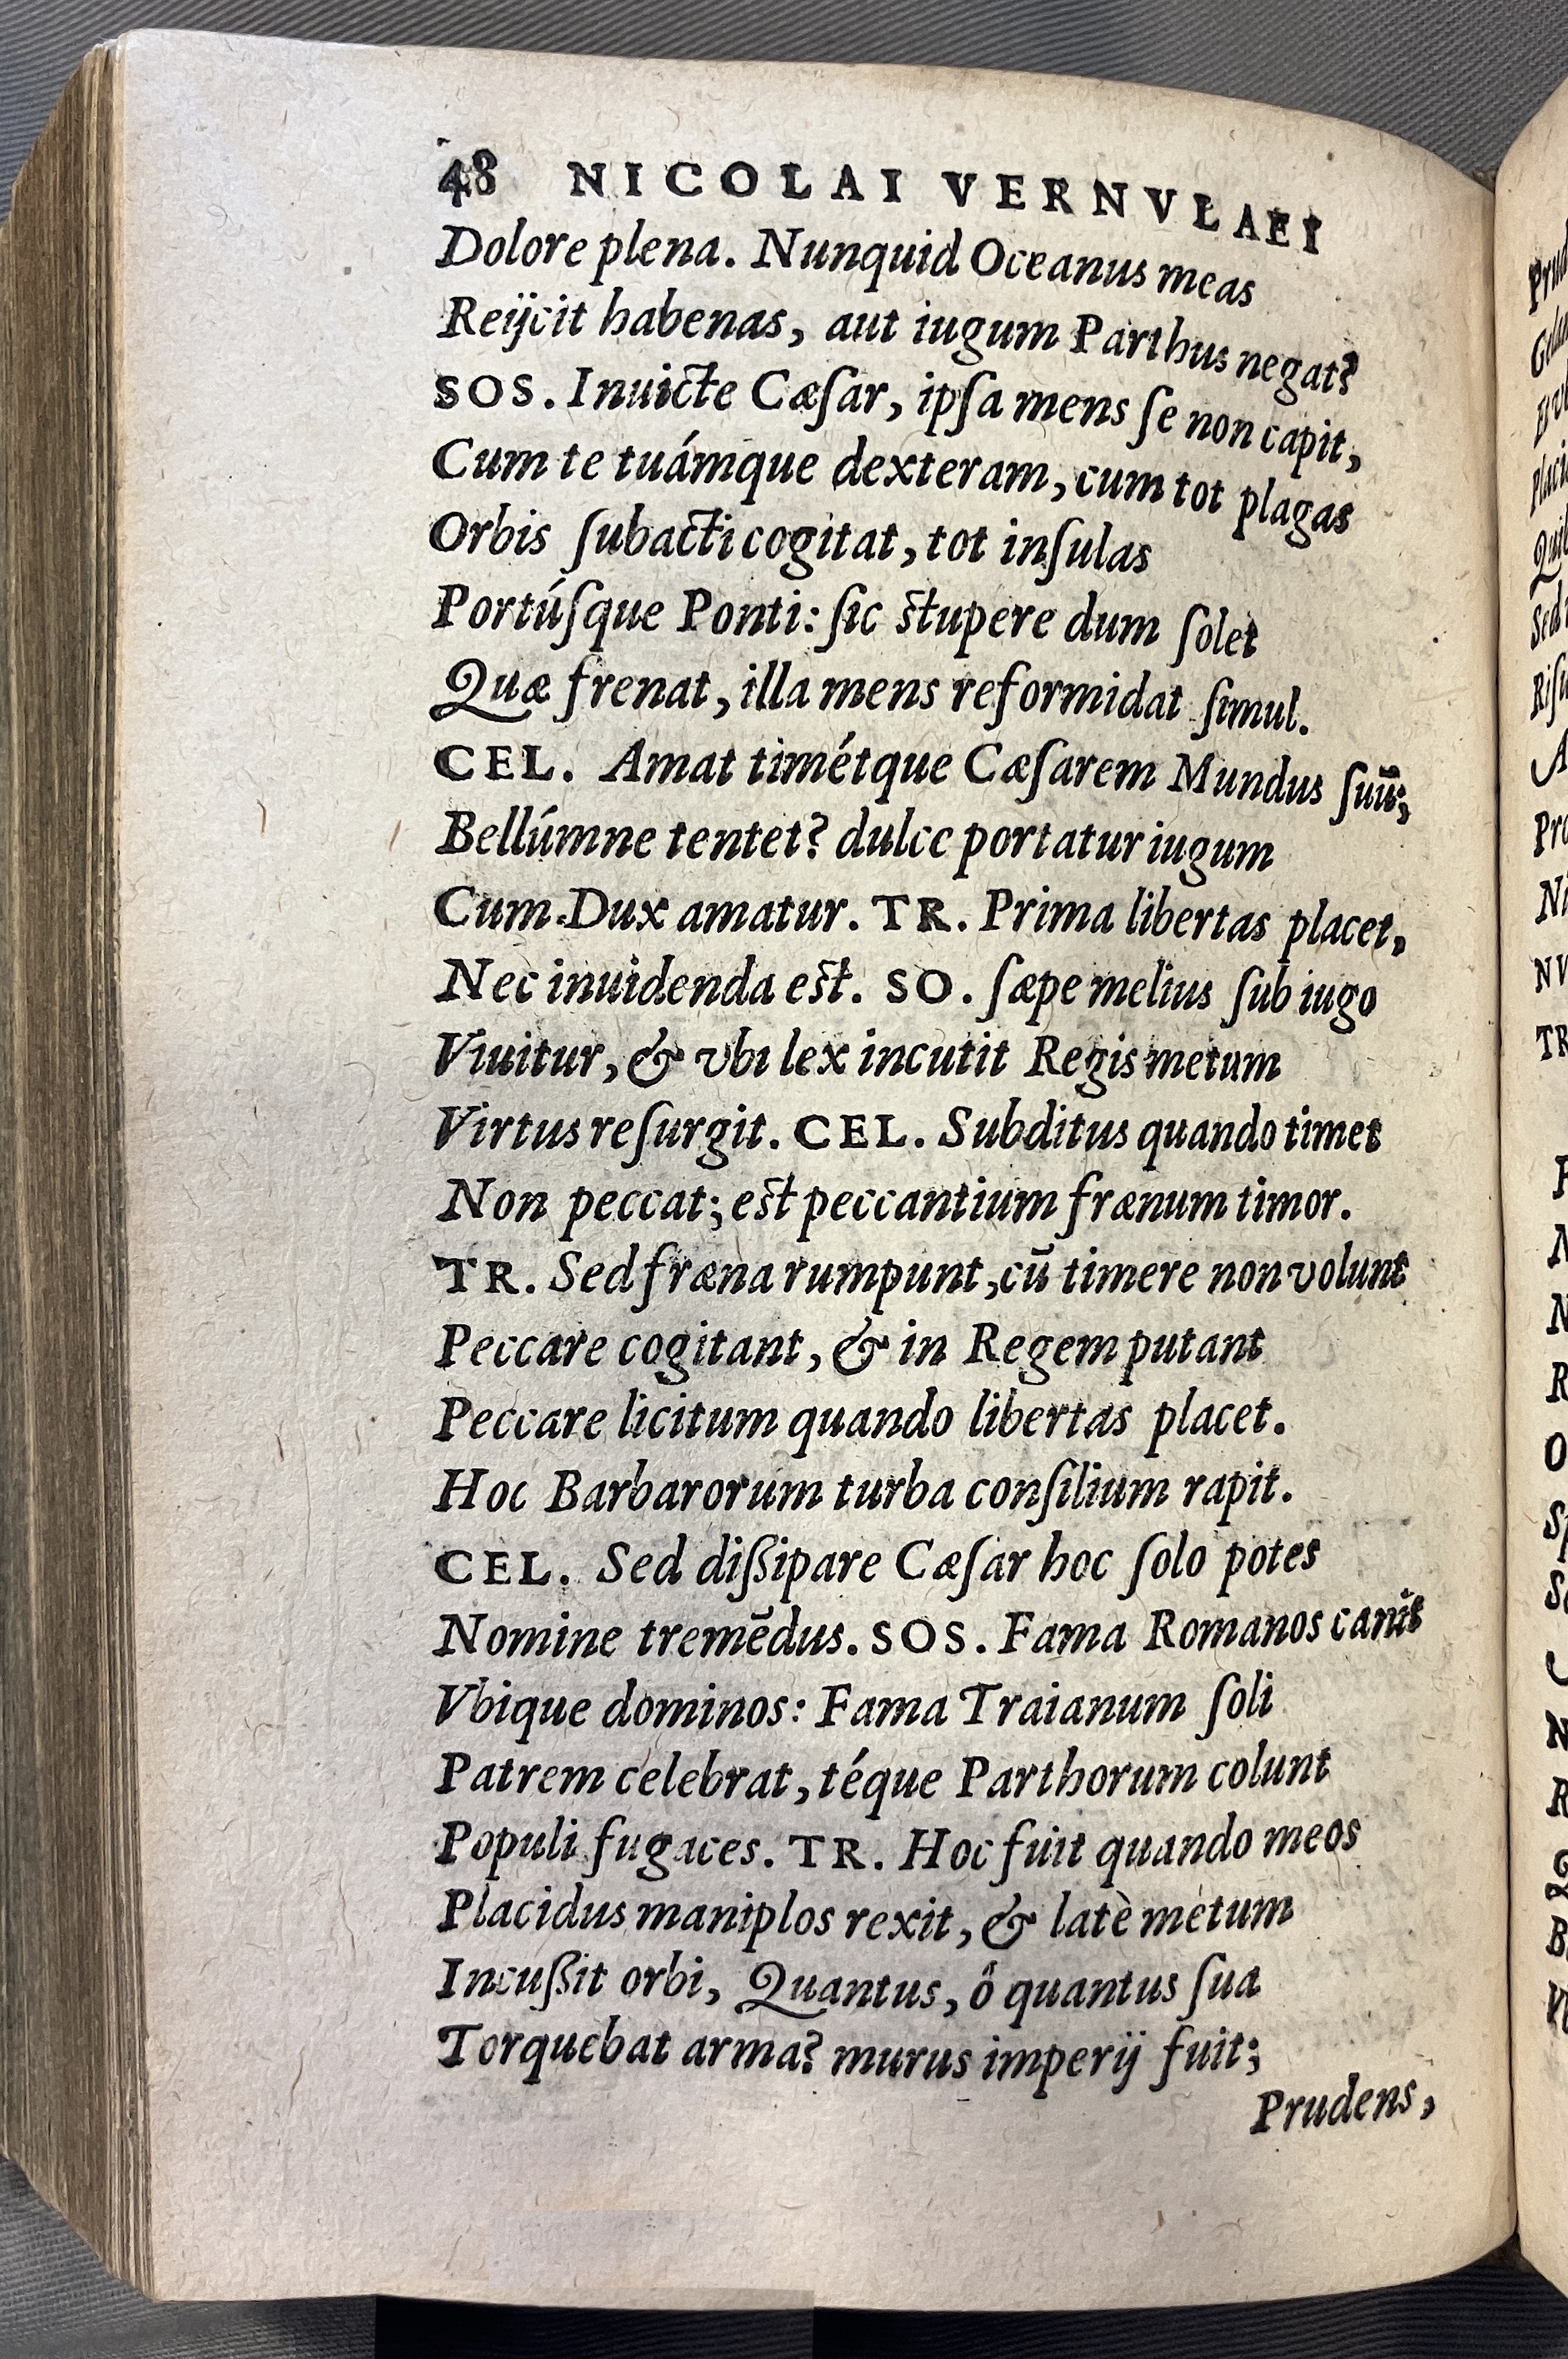 48 NICOLAI VERNVLAEI
Dolore plena. Nunquid Oceanus meas
Reijcit habenas, aut iugum Parthus negat?
SOS. Inuicte Cæſar, ipſa mens ſe non capit,
Cum te tuámque dexteram, cum tot plagas
Orbis ſubacti cogitat, tot inſulas
Portúſque Ponti: ſic stupere dum ſolet
Quæ frenat, illa mens reformidat ſimul.
CEL. Amat timétque Cæſarem Mundus ſuū;,
Bellúmne tentet? dulce portatur iugum
Cum Dux amatur. TR. Prima libertas placet,
Nec inuidenda est. SO. ſæpe melius ſub iugo
Viuitur, & vbi lex incutit Regis metum
Virtus reſurgit. CEL. Subditus quando timet
Non peccat; est peccantium frænum timor.
TR. Sed fræna rumpunt, cū timere non volunt
Peccare cogitant, & in Regem putant
Peccare licitum quando libertas placet.
Hoc Barbarorum turba conſilium rapit.
CEL. Sed diſsipare Cæſar hoc ſolo potes
Nomine tremēdus. SOS. Fama Romanos canit
Vbique dominos: Fama Traianum ſoli
Patrem celebrat, téque Parthorum colunt
Populi fugaces. TR. Hoc fuit quando meos
Placidus maniplos rexit, & latè metum
Incuſsit orbi, Quantus, ô quantus ſua
Torquebat arma? murus imperij fuit;
Prudens,